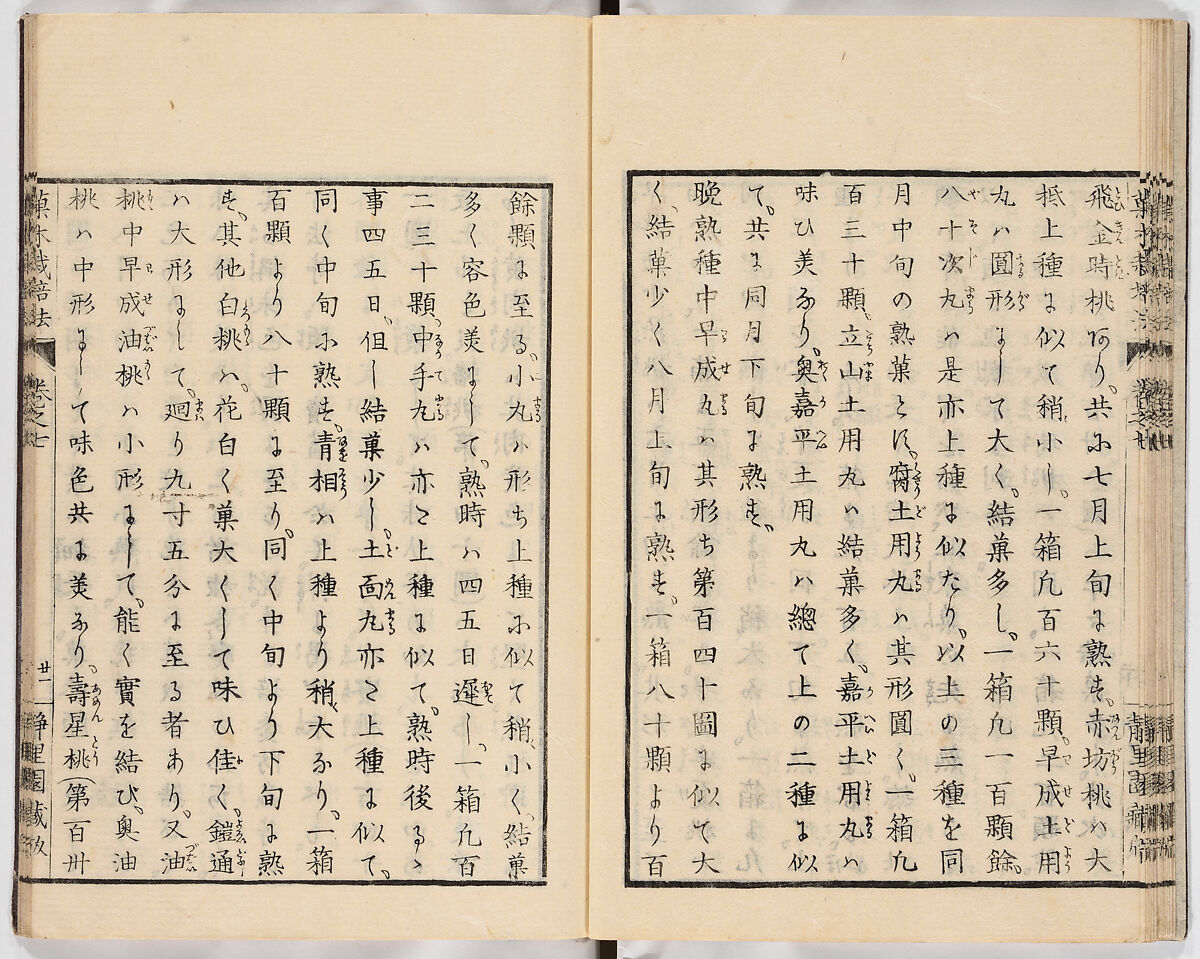 飛金時桃アリ。共ニ七月上旬ニ熟ス。赤坊桃ハ大
抵上種に似て稍小し。一箱凡百六十顆。早成土用
丸ハ圓形にして大く、結菓多し。一箱凡一百顆餘。
八十次丸ハ是亦上種に似たり。以上の三種を同
月中旬の熟菓とす。腐土用丸ハ其形圓く、一箱凡
百三十顆。立山土用丸ハ結菓多く、嘉平土用丸ハ
味ひ美なり。奥嘉平土用丸ハ總て上の二種に似
て、共に同月下旬に熟す。
晩熟種中早成丸ハ其形ち第百四十圖に似て大
く、結菓少く八月上旬に熟す。一箱八十顆より百
餘顆に至る。小丸ハ形ち上種に似て稍小く、結菓
多く容色美にして、熟時ハ四五日遲し。一箱凡百
二三十顆。中手丸ハ亦た上種に似て、熟時後るゝ
事四五日。但し結菓少し。土面丸亦た上種に似て、
同く中旬に熟す。青相ハ上種より稍大なり。一箱
百顆より八十顆に至り。同く中旬より下旬に熟
す。其他白桃ハ、花白く菓大くして味ひ佳く。鎧通
ハ大形にして、廻り九寸五分に至る者あり。又油
桃中早成油桃ハ小形にして、能く實を結び、奥油
桃ハ中形にして味色共に美なり。壽星桃(第百卅
菓木栽培法
卷之七
廿一
静里園藏板